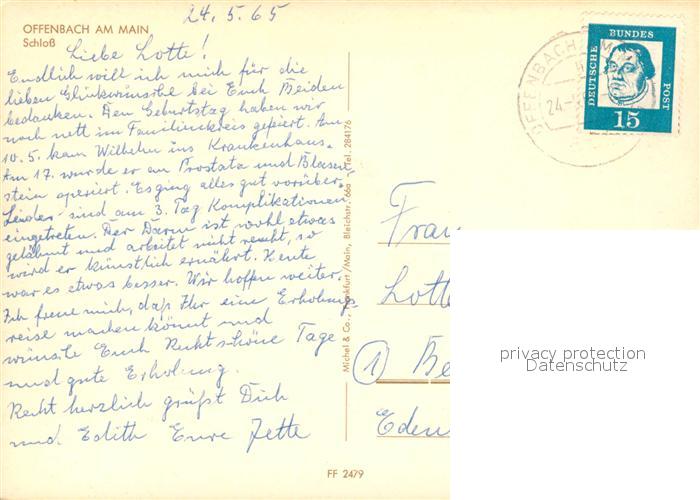 24.5.65
OFFENBACH AM MAIN
Schloß
Liebe Lotte!
Endlich will ich mich für die
lieben Glückwünsche bei Euch Beiden
bedanken. Den Geburtstag haben wir
noch nett im Familienkreis gefeiert. Am
10.5. kam Wilhelm ins Krankenhaus.
Am 17. wurde er an Prostata und Blasen-
stein operiert. Es ging alles gut vorüber.
Leider sind am 3. Tag Komplikationen
eingetreten. Der Darm ist wohl etwas
gelähmt und arbeitet nicht recht, so
wird er künstlich ernährt. Heute
war es etwas besser. Wir hoffen weiter.
Ich freue mich, daß Ihr eine Erholungs-
reise machen könnt und
wünsche Euch Recht schöne Tage
und gute Erholung.
Recht herzlich grüßt Dich
und Edith Eure Jette
Michel & Co., Frankfurt/Main, Bleichstr. 66a Tel. 284176
FF 2479
OFFENBACH
24.-5
DEUTSCHE
BUNDES
POST
15
Frau
Lotte
(1) Be
Eden
privacy protection
Datenschutz